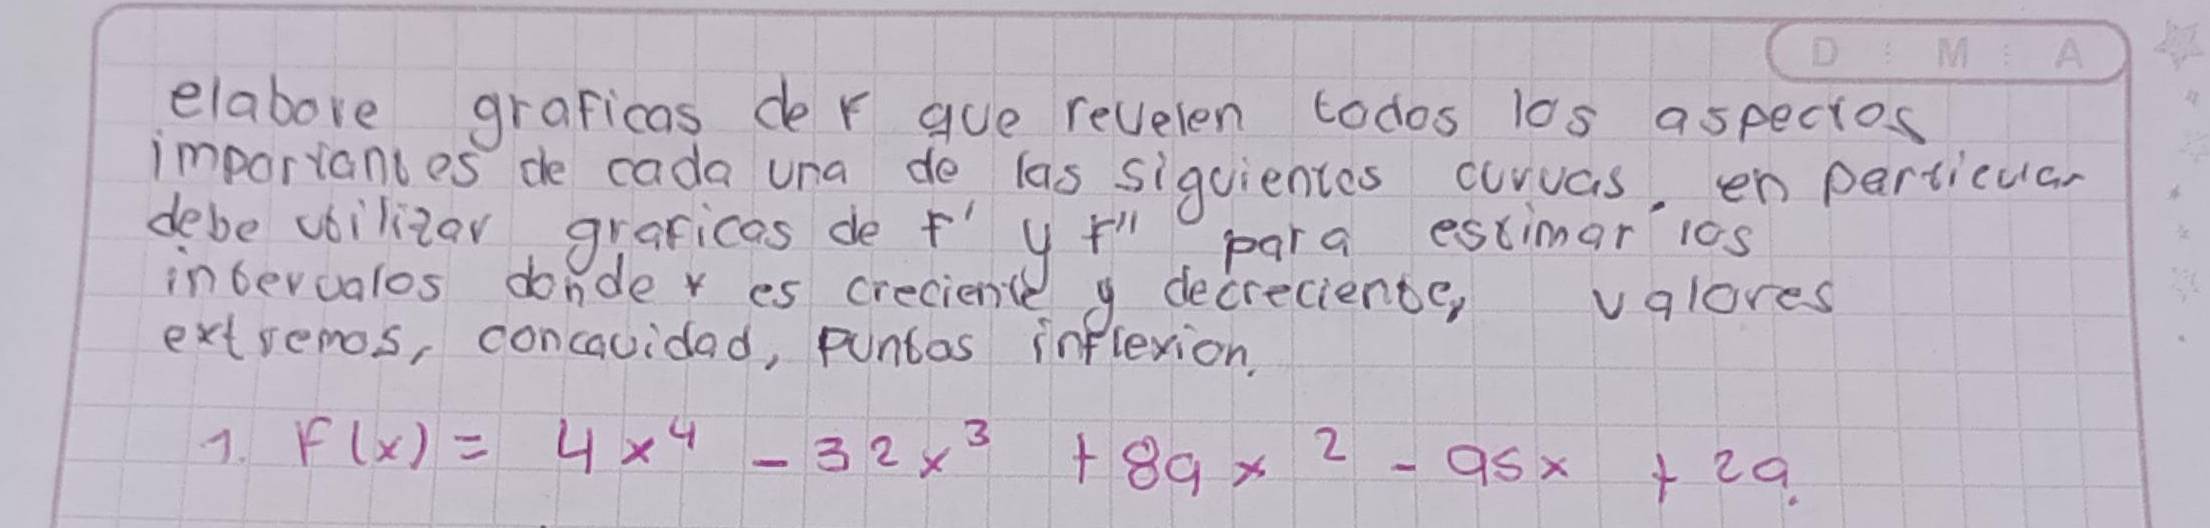 D : M : A
elabore graficas de f que revelen todos los aspectos
importantes de cada una de las siguientes curvas, en particular
debe utilizar graficas de f' y f'' para estimar los
intervalos donde f es creciente y decreciente, valores
extremos, concavidad, puntos inflexion.
1. F(x) = 4x⁴ - 32x³ + 89x² - 95x + 29.